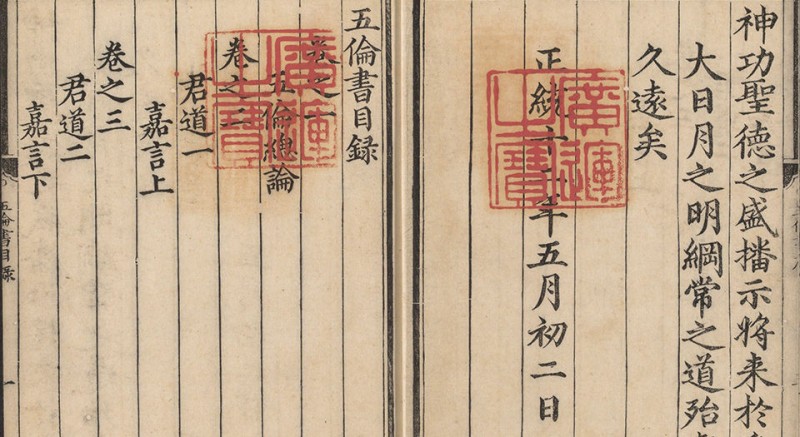 神功聖德之盛播示將来於
大日月之明綱常之道殆
久遠矣
正統十二年五月初二日
廣運之寶
五倫書目録
卷之一
五倫總論
卷之二
君道一
嘉言上
卷之三
君道二
嘉言下
廣運之寶
五倫書目録
一